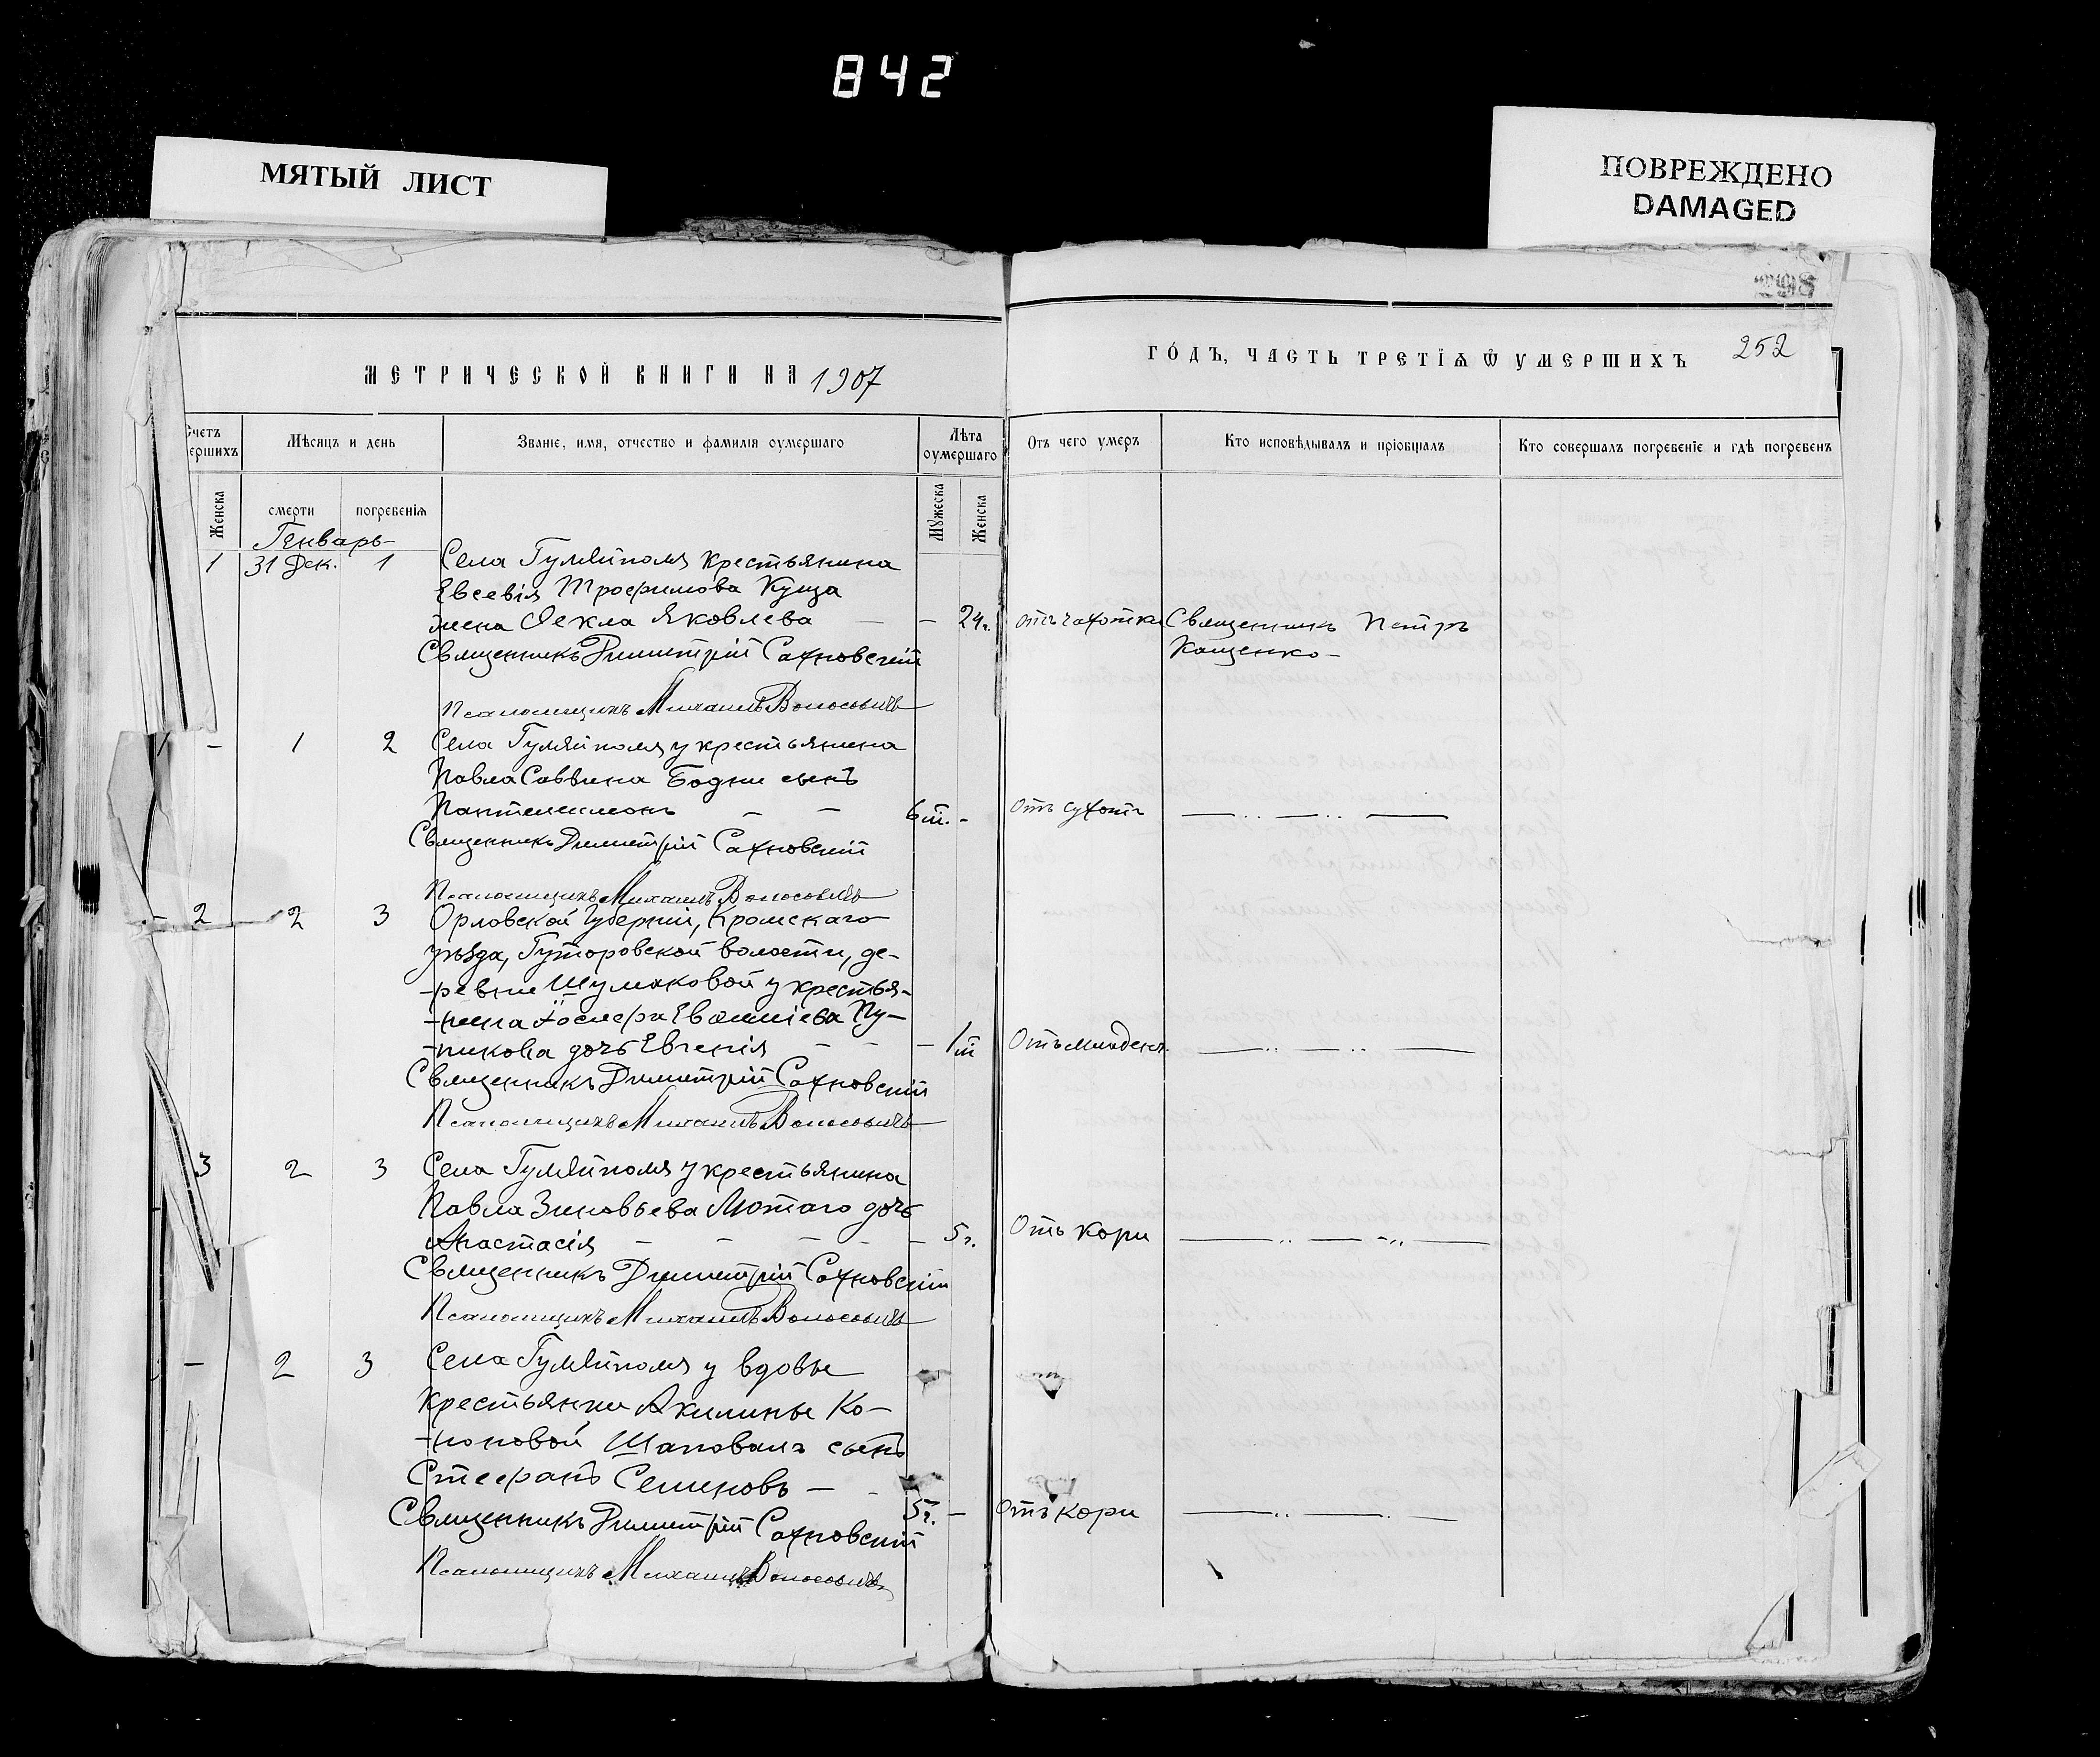 842
МЯТЫЙ ЛИСТ
ПОВРЕЖДЕНО
DAMAGED
МЕТРИЧЕСКОЙ КНИГИ НА 1907
ГО́ДЪ, ЧАСТЬ ТРЕТІѦ Ѿ УМЕРШИХЪ 252
Счетъ
ершихъ
Мѣсяцъ и день
Званіе, имя, отчество и фамилія оумершаго
Лѣта
оумершаго
Отъ чего умеръ
Кто исповѣдывалъ и пріобщалъ
Кто совершалъ погребеніе и гдѣ погребенъ
Женска
смерти
погребенія
Мужеска
Женска
Генварь
1 31 Дек. 1 Села Гуляйполя крестьянина
Евсевія Трофимова Куща
жена Ѳекла Яковлева — — 24 г. отъ чахотки Священникъ Петръ
Кащенко
Священникъ Димитрій Сахновскій
Псаломщикъ Михаилъ Волосовичъ
1 - 1 2 Села Гуляйполя у крестьянина
Павла Саввина Бодни сынъ
Пантелеимонъ — — 6 м. - Отъ сухотъ
Священникъ Димитрій Сахновскій
Псаломщикъ Михаилъ Волосовичъ
- 2 2 3 Орловской Губерніи, Кромскаго
уѣзда, Гуторовской волости, де-
-ревни Шумаковой у крестья-
-нина
-никова дочь Евгенія — — — 1 м Отъ младенч.
Священникъ Димитрій Сахновскій
Псаломщикъ Михаилъ Волосовичъ
3 2 3 Села Гуляйполя у крестьянина
Павла Зиновьева Лютаго дочь
Анастасія — — — — — 5 г. Отъ кори
Священникъ Димитрій Сахновскій
Псаломщикъ Михаилъ Волосовичъ
- 2 3 Села Гуляйполя у вдовы
крестьянки Акилины Ко-
-ноновой Шаповалъ сынъ
Стефанъ Семеновъ — - 5 г. — Отъ кори
Священникъ Димитрій Сахновскій
Псаломщикъ Михаилъ Волосовичъ